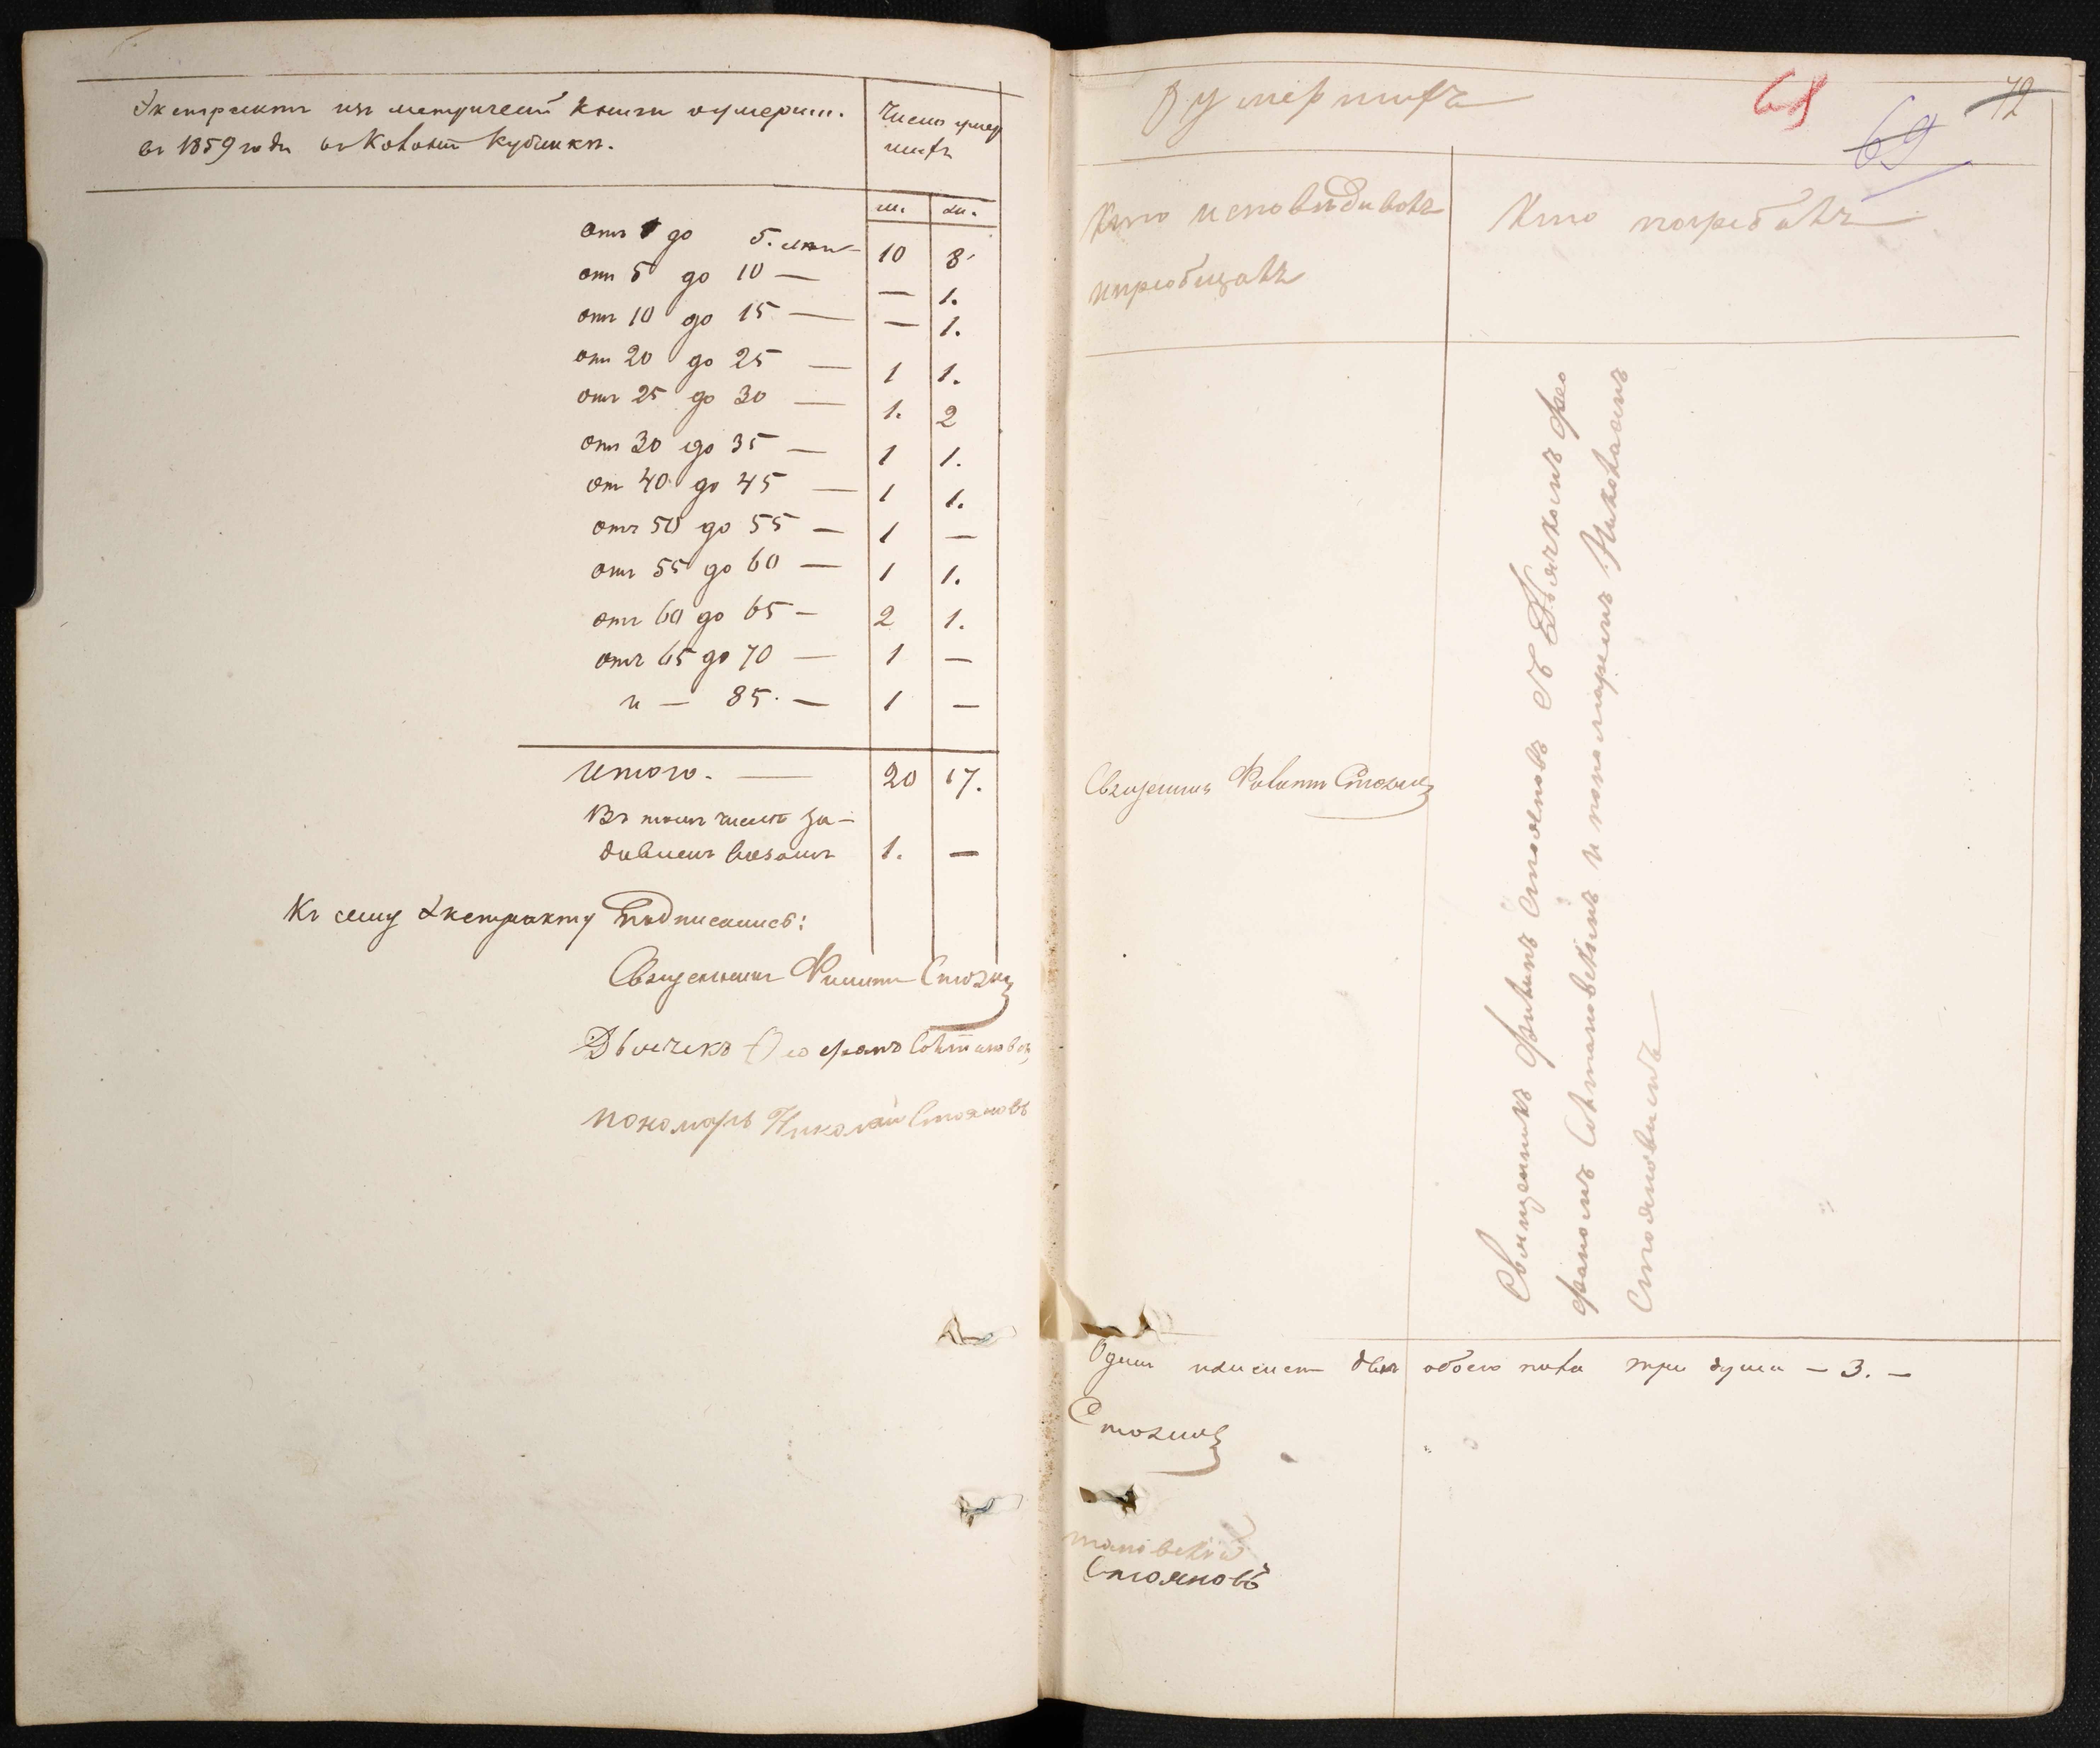 Экстрактъ изъ метрической книги о умерш.
въ 1859 годѣ въ колоніи Кубинкѣ.
Число умер
шихъ
м. ж.
отъ 1 до 5. лѣтъ — 10 8.
отъ 5 до 10 — — 1.
отъ 10 до 15 — — 1.
отъ 20 до 25 — 1 1.
отъ 25 до 30 — 1. 2
отъ 30 до 35 — 1 1.
от 40 до 45 — 1 1.
отъ 50 до 55 — 1 —
отъ 55 до 60 — 1 1.
отъ 60 до 65 — 2 1.
отъ 65 до 70 — 1 —
и — 85. — 1 —
Итого. — 20 17.
Въ томъ числѣ за-
давленъ возомъ 1. —
Къ сему экстракту подписались:
Священникъ Филиппъ Стоянов
Дьячекъ Феофанъ Солтановск
пономарь Николай Стояновъ
О умершихъ
68
69
72
Кто исповѣдивалъ
и пріобщалъ
Кто погребалъ
Священникъ Филиппъ Стоянов
Священникъ Филипъ Стояновъ съ Дьячкомъ Фео
фаномъ Солтановскимъ и пономаремъ Николаемъ
Стояновымъ
Одинъ двѣ обоего пола три души — 3. —
Стоянов
тановскій
Стояновъ